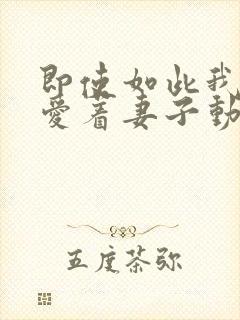 即使如此我
爱着妻子動
五度茶弥